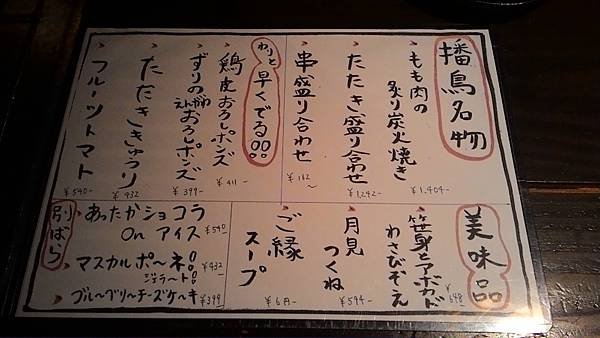 播鳥名物
もも肉の
炙り炭火焼き
¥1,404-
たたき盛り合わせ
¥1,242-
串盛り合わせ
¥162~
わりと早くでる品
鶏皮おろしポンズ
¥411-
ずりのえんがわ
おろしポンズ
¥399-
たたききゅうり
¥432
フルーツトマト
¥540-
美味品
笹身とアボカド
わさびぞえ
¥648
月見
つくね
¥594-
ご縁
スープ
¥6円-
別ばら
あったかショコラ
On アイス ¥540
マスカルポ〜ネ
ジェラ〜ト ¥432
ブル〜ベリ〜チーズケ〜キ ¥399